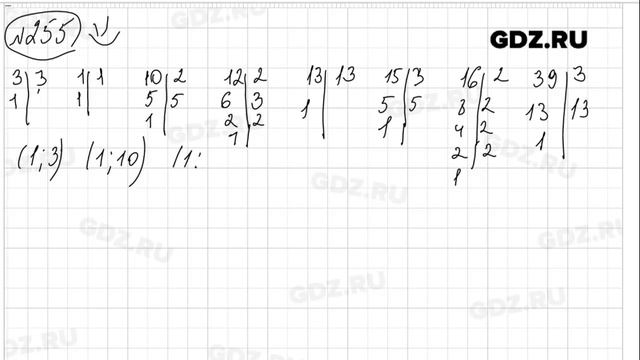 №255
GDZ.RU
3|3 1|1 10|2 12|2 13|13 15|3 16|2 39|3
1| 1| 5|5 6|3 1| 5|5 8|2 13|13
1| 2|2 1| 4|2 1|
1| 2|2
1
(1;3) (1;10) (1;
GDZ.RU
GDZ.RU
GDZ.RU
GDZ.RU
GDZ.RU
GDZ.RU
GDZ.RU
GDZ.RU
GDZ.RU